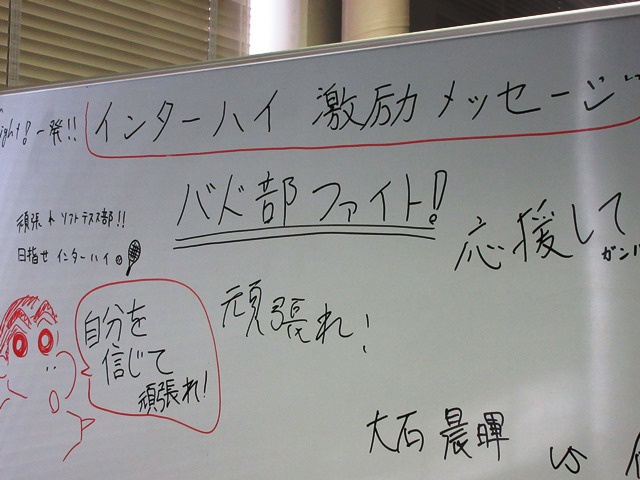 ight! 一発!!
インターハイ 激励 メッセージ
バド部ファイト!
頑張れ ソフトテニス部!!
目指せ インターハイ
応援して
ガンバ
自分を
信じて
頑張れ!
頑張れ!
大石 晨暉